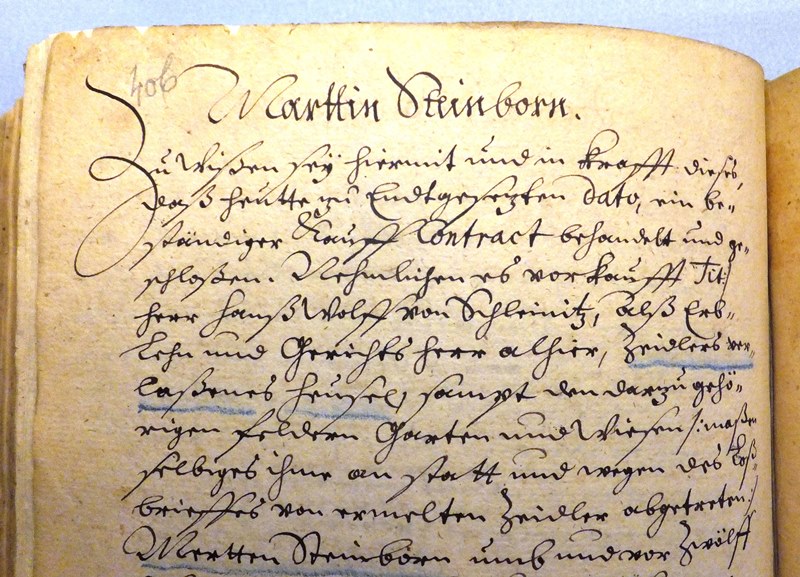 406
Marttin Steinborn.
Zu Wißen sey hiermit und in krafft dieses,
daß heutte zu Endtgesetzten dato, ein be-
ständiger Kauff Contract behandelt und ge-
schloßen. Nehmlichen es vorkaufft Tit:
herr Hanß Wolff von Schleinitz, alß Erb-
Lehn und Gerichts herr alhier, Zeidlers ver-
laßenes heusel, sampt den darzu gehö-
rigen feldern Garten und Wiesen /: maßen
selbiges ihme an statt und wegen des Loß-
brieffes von ermelten Zeidler abgetreten :/
Mertten Steinborn umb und vor Zwölff